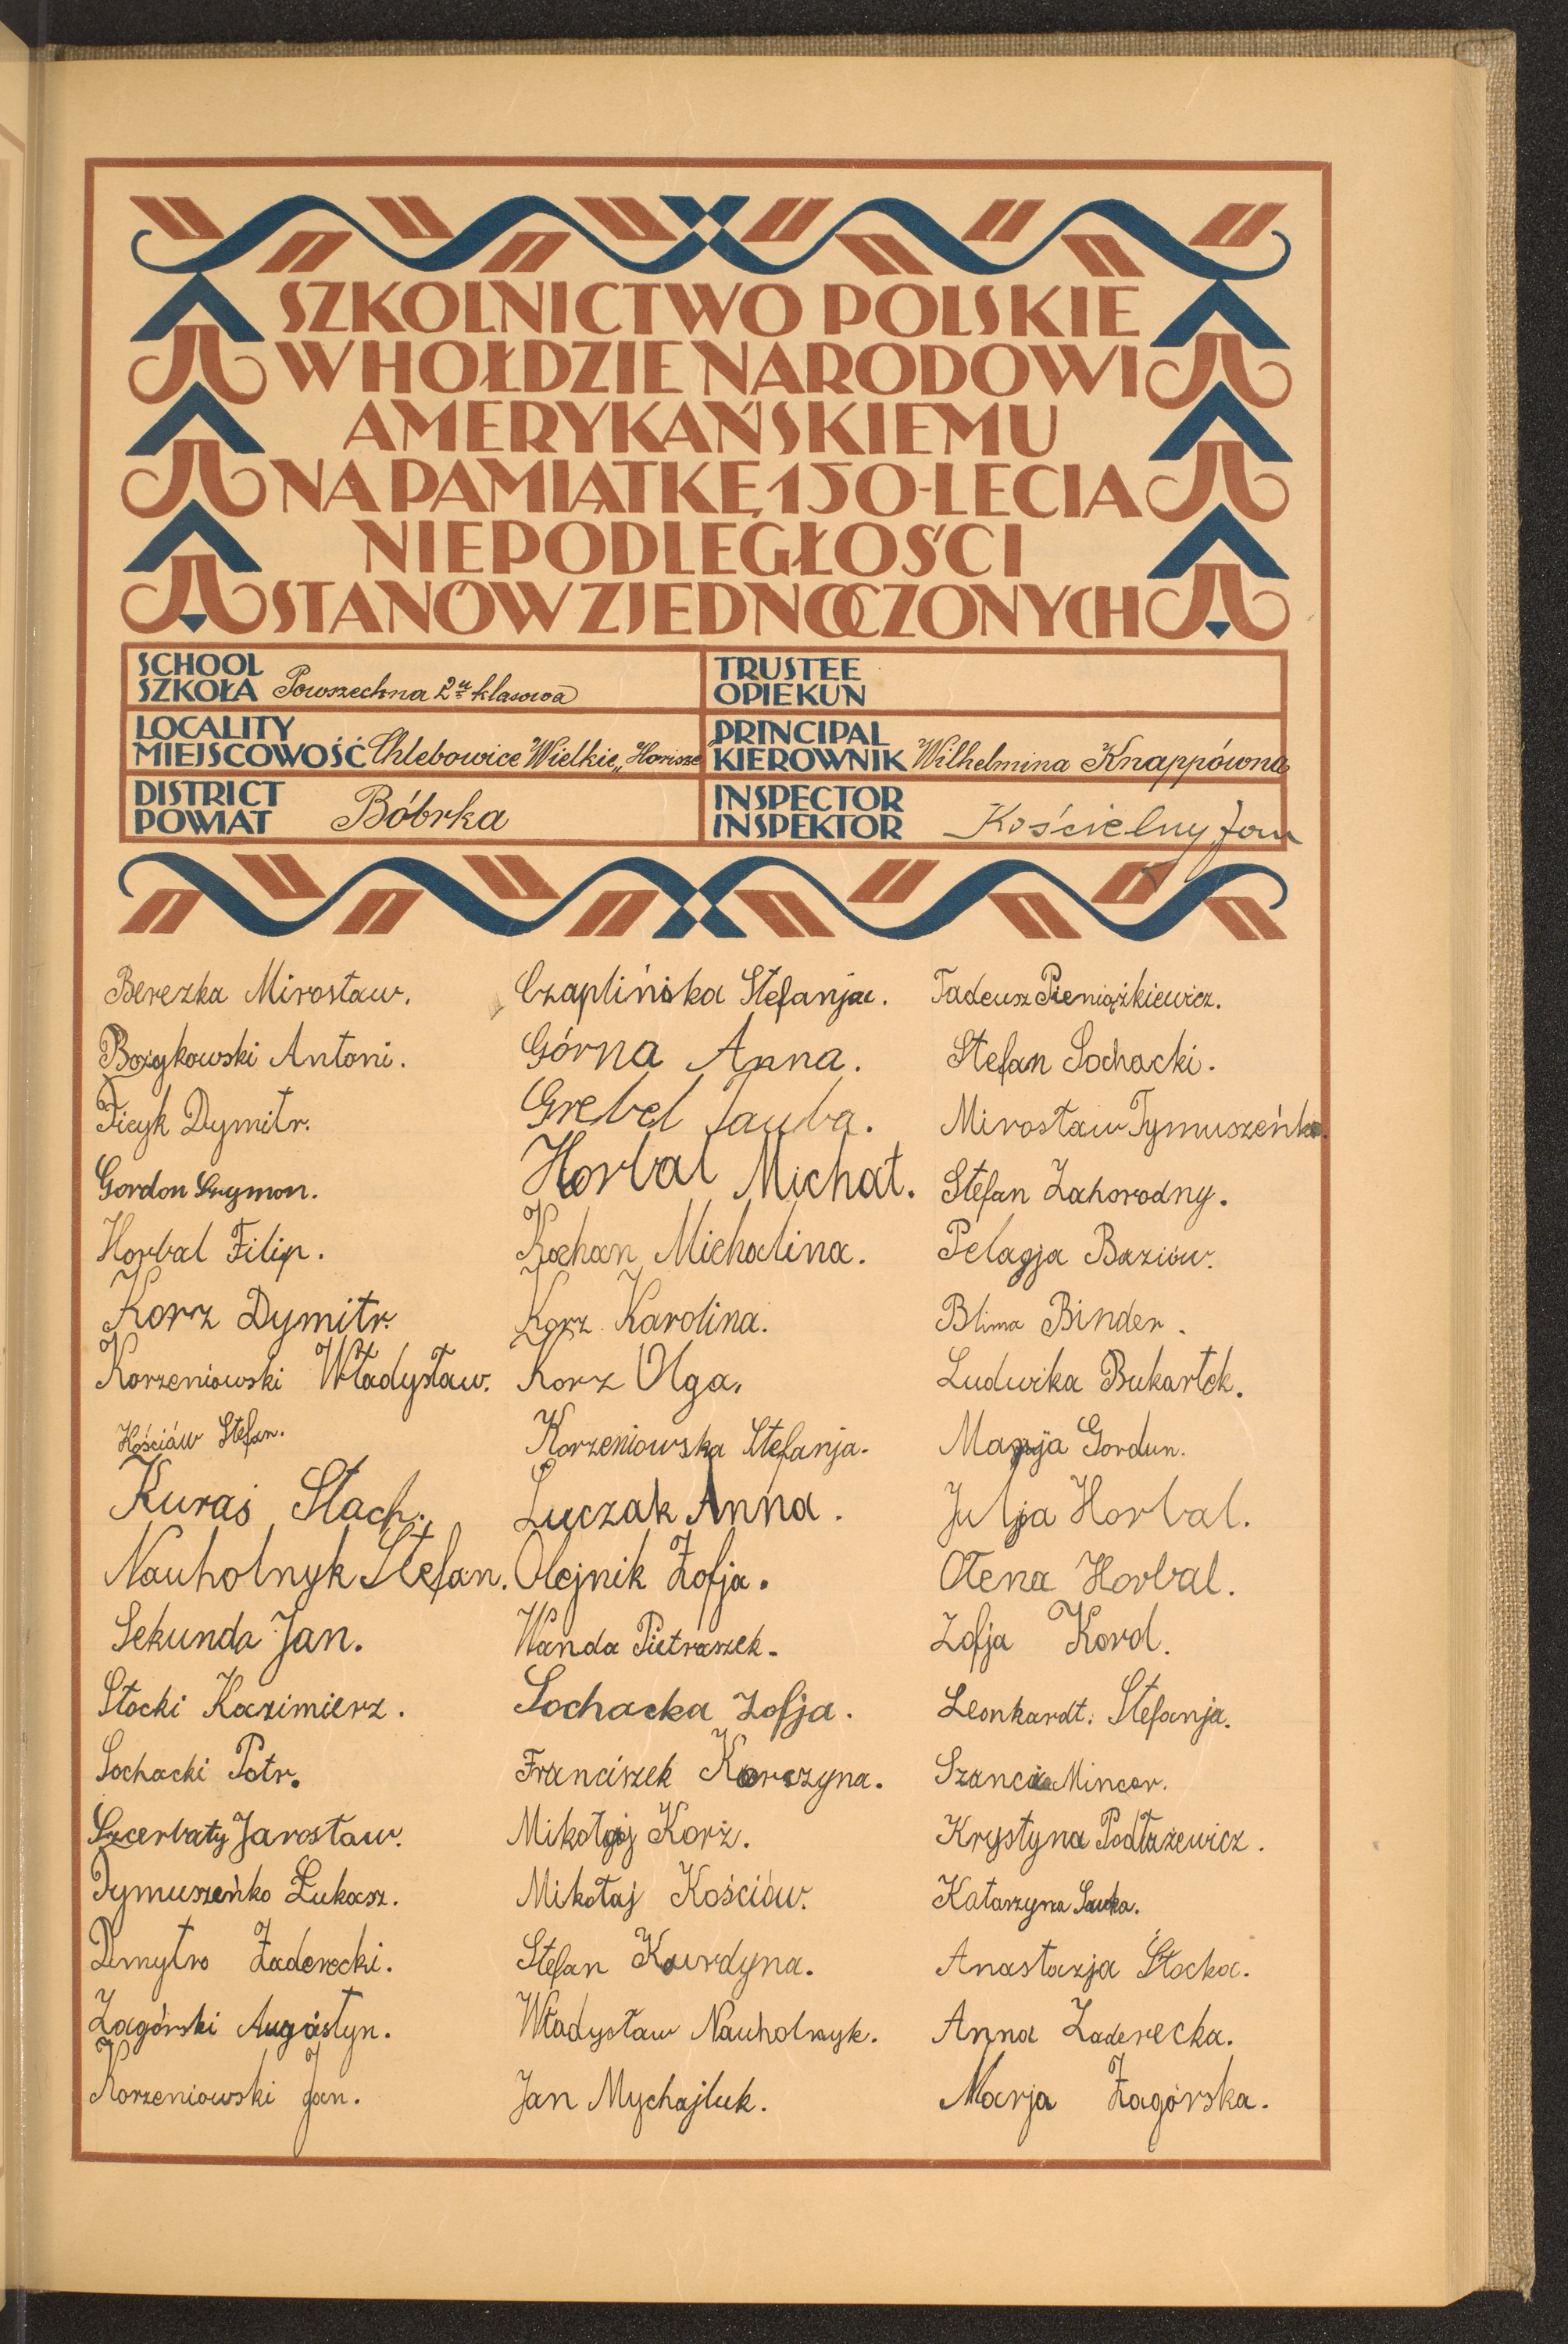 SZKOLNICTWO POLSKIE
W HOŁDZIE NARODOWI
AMERYKAŃSKIEMU
NA PAMIĄTKĘ 150-LECIA
NIEPODLEGŁOŚCI
STANÓW ZJEDNOCZONYCH
SCHOOL
SZKOŁA Powszechna 2u klasowa
TRUSTEE
OPIEKUN
LOCALITY
MIEJSCOWOŚĆ Chlebowice Wielkie „Horisze"
PRINCIPAL
KIEROWNIK Wilhelmina Knappówna
DISTRICT
POWIAT Bóbrka
INSPECTOR
INSPEKTOR Kościelny Jan
Berezka Mirosław.
Bożykowski Antoni.
Ficyk Dymitr.
Gordon Szymon.
Horbal Filip.
Korz Dymitr.
Korzeniowski Władysław.
Kościów Stefan.
Kuraś Stach.
Nauholnyk Stefan.
Sekunda Jan.
Stocki Kazimierz.
Sochacki Potr.
Szcerbaty Jarosław.
Tymuszeńko Łukasz.
Dmytro Zaderecki.
Zagórski Augóstyn.
Korzeniowski Jan.
Czaplińska Stefanja.
Górna Anna.
Grebel Tauba.
Horbal Michał.
Kochan Michalina.
Korz Karolina.
Korz Olga.
Korzeniowska Stefanja.
Łuczak Anna.
Olejnik Zofja.
Wanda Pietraszek.
Sochacka Zofja.
Franciszek Korczyna.
Mikołaj Korż.
Mikołaj Kościów.
Stefan Kurdyna.
Władysław Nauholnyk.
Jan Mychajluk.
Tadeusz Pieniążkiewicz.
Stefan Sochacki.
Mirosław Tymuszeńko.
Stefan Zahorodny.
Pelagja Baziów.
Blima Binder.
Ludwika Bukartek.
Marja Gordun.
Julja Horbal.
Ołena Horbal.
Zofja Kord.
Leonkardt. Stefanja.
Szancia Mincer.
Krystyna Podłażewicz.
Katarzyna Sawka.
Anastazja Stocka.
Anna Zaderecka.
Marja Zagórska.